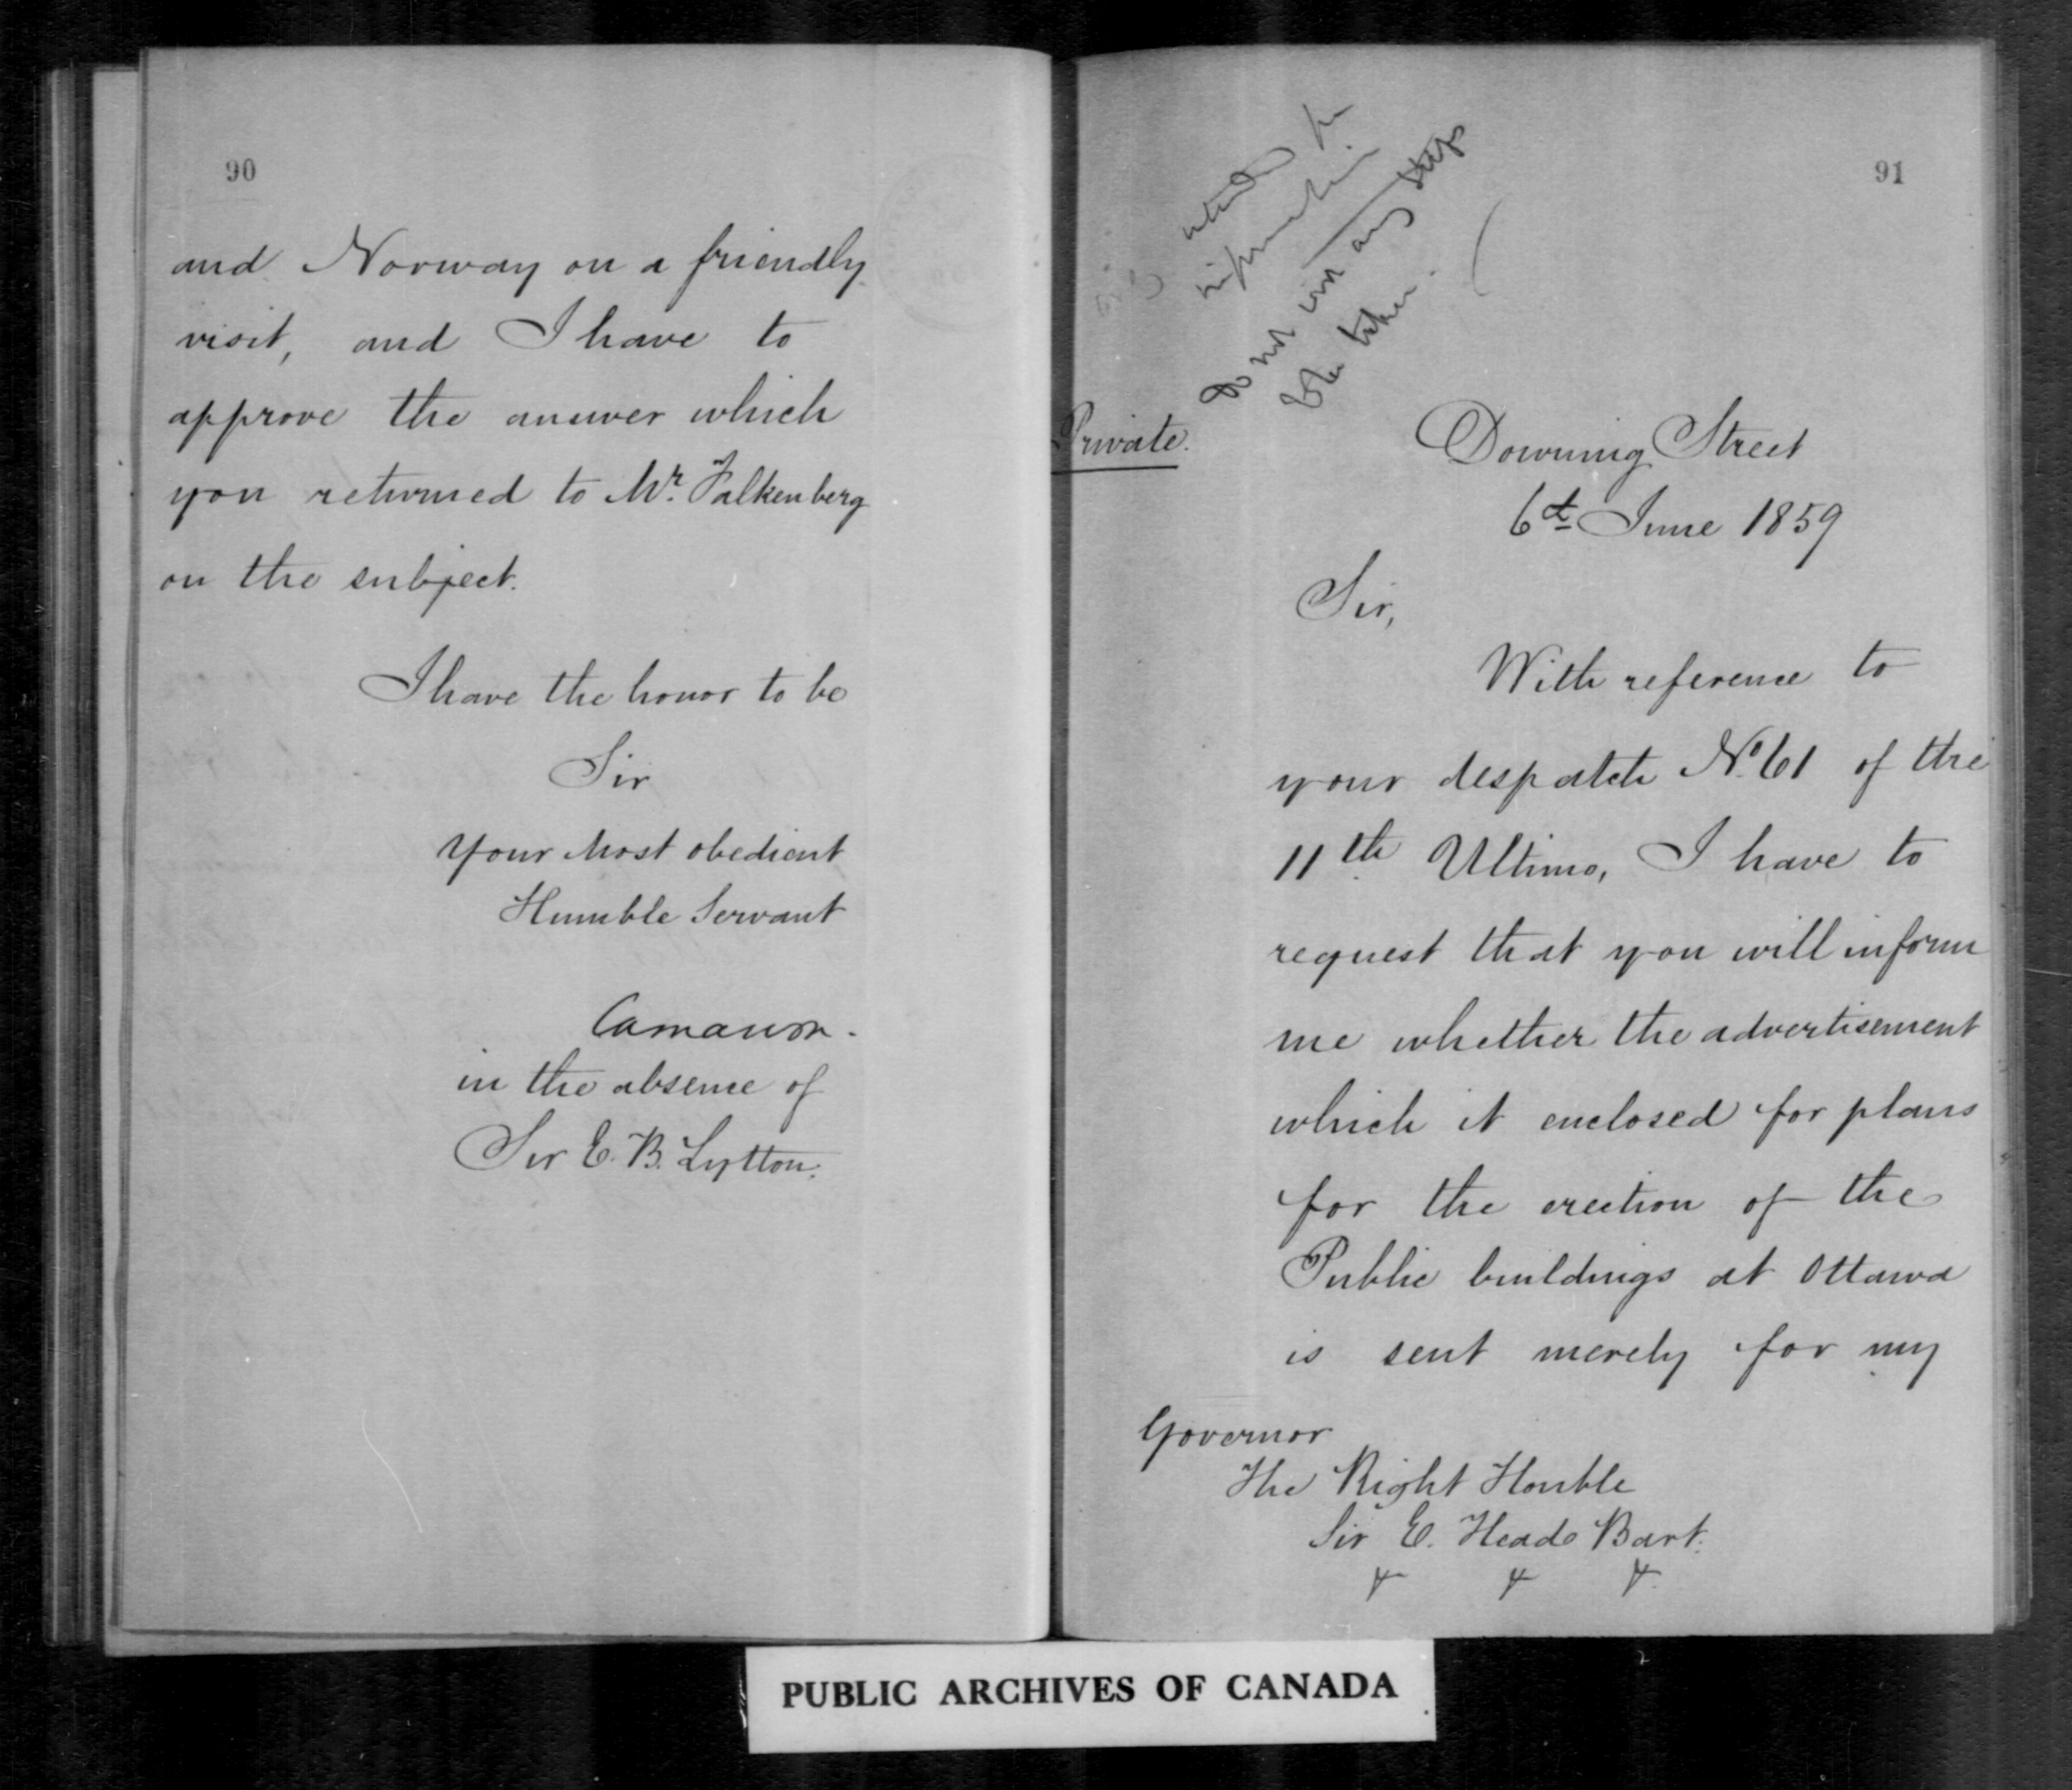 90
and Norway on a friendly
visit, and I have to
approve the answer which
you returned to Mr. Falkenberg
on the subject.
I have the honor to be
Sir
Your Most obedient
Humble Servant
Carnarvon.
in the absence of
Sir E. B. Lytton.
91
information
do not wish any steps
to be taken.
Private.
Downing Street
6th June 1859
Sir,
With reference to
your despatch No. 61 of the
11th Ultimo, I have to
request that you will inform
me whether the advertisement
which it enclosed for plans
for the erection of the
Public buildings at Ottawa
is sent merely for my
Governor
The Right Honble
Sir E. Head Bart.
PUBLIC ARCHIVES OF CANADA